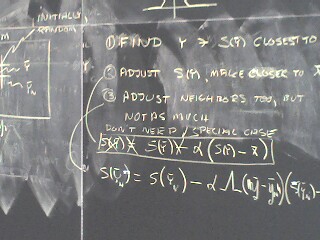 INITIALLY
RANDOM
M
① FIND Y ∋ S(Ȳ) CLOSEST TO
② ADJUST S(Ȳ), MAKE CLOSER TO X̄
③ ADJUST NEIGHBORS TOO, BUT
NOT AS MUCH
DON'T NEED / SPECIAL CASE
S(ȳ) ← S(ȳ) - α (S(ȳ) - x̄)